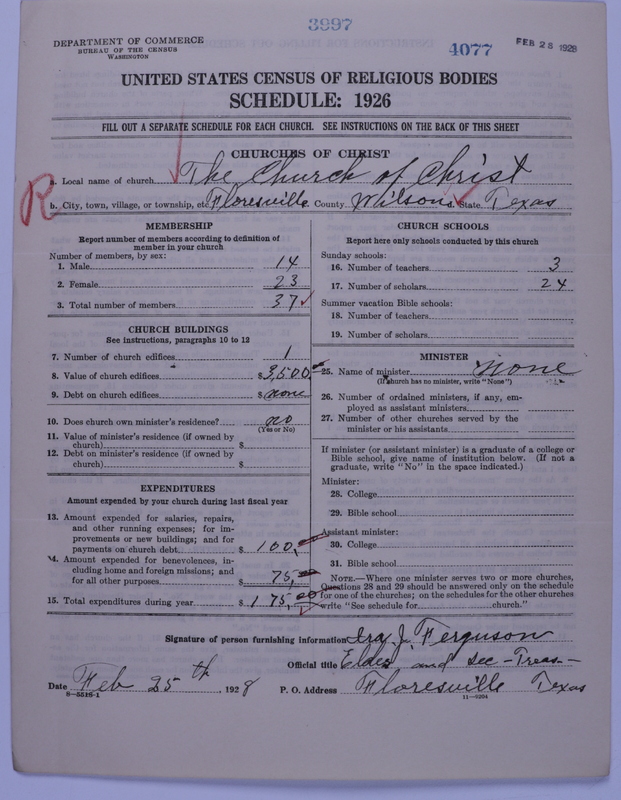 3997
DEPARTMENT OF COMMERCE
BUREAU OF THE CENSUS
WASHINGTON
4077
FEB 28 1928
UNITED STATES CENSUS OF RELIGIOUS BODIES
SCHEDULE: 1926
FILL OUT A SEPARATE SCHEDULE FOR EACH CHURCH. SEE INSTRUCTIONS ON THE BACK OF THIS SHEET
CHURCHES OF CHRIST
R
a. Local name of church The Church of Christ
b. City, town, village, or township, etc. Floresville County Wilson State Texas
MEMBERSHIP
Report number of members according to definition of
member in your church
Number of members, by sex:
1. Male 14
2. Female 23
3. Total number of members 37
CHURCH BUILDINGS
See instructions, paragraphs 10 to 12
7. Number of church edifices 1
8. Value of church edifices $3,500
9. Debt on church edifices $none
10. Does church own minister's residence? no
(Yes or No)
11. Value of minister's residence (if owned by
church) $
12. Debt on minister's residence (if owned by
church) $
EXPENDITURES
Amount expended by your church during last fiscal year
13. Amount expended for salaries, repairs,
and other running expenses; for im-
provements or new buildings; and for
payments on church debt $ 100,
14. Amount expended for benevolences, in-
cluding home and foreign missions; and
for all other purposes $ 75,
15. Total expenditures during year $ 175,00
CHURCH SCHOOLS
Report here only schools conducted by this church
Sunday schools:
16. Number of teachers 3
17. Number of scholars 24
Summer vacation Bible schools:
18. Number of teachers
19. Number of scholars
MINISTER
25. Name of minister none
(If church has no minister, write "None")
26. Number of ordained ministers, if any, em-
ployed as assistant ministers
27. Number of other churches served by the
minister or his assistants
If minister (or assistant minister) is a graduate of a college or
Bible school, give name of institution below. (If not a
graduate, write "No" in the space indicated.)
Minister:
28. College
29. Bible school
Assistant minister:
30. College
31. Bible school
NOTE.—Where one minister serves two or more churches,
Questions 28 and 29 should be answered only on the schedule
for one of the churches; on the schedules for the other churches
write "See schedule for church."
Signature of person furnishing information Ira J. Ferguson
Official title Elder and Sec-Treas-
Date Feb 25th, 1928 P. O. Address Floresville Texas
8—5516-1 11—9204